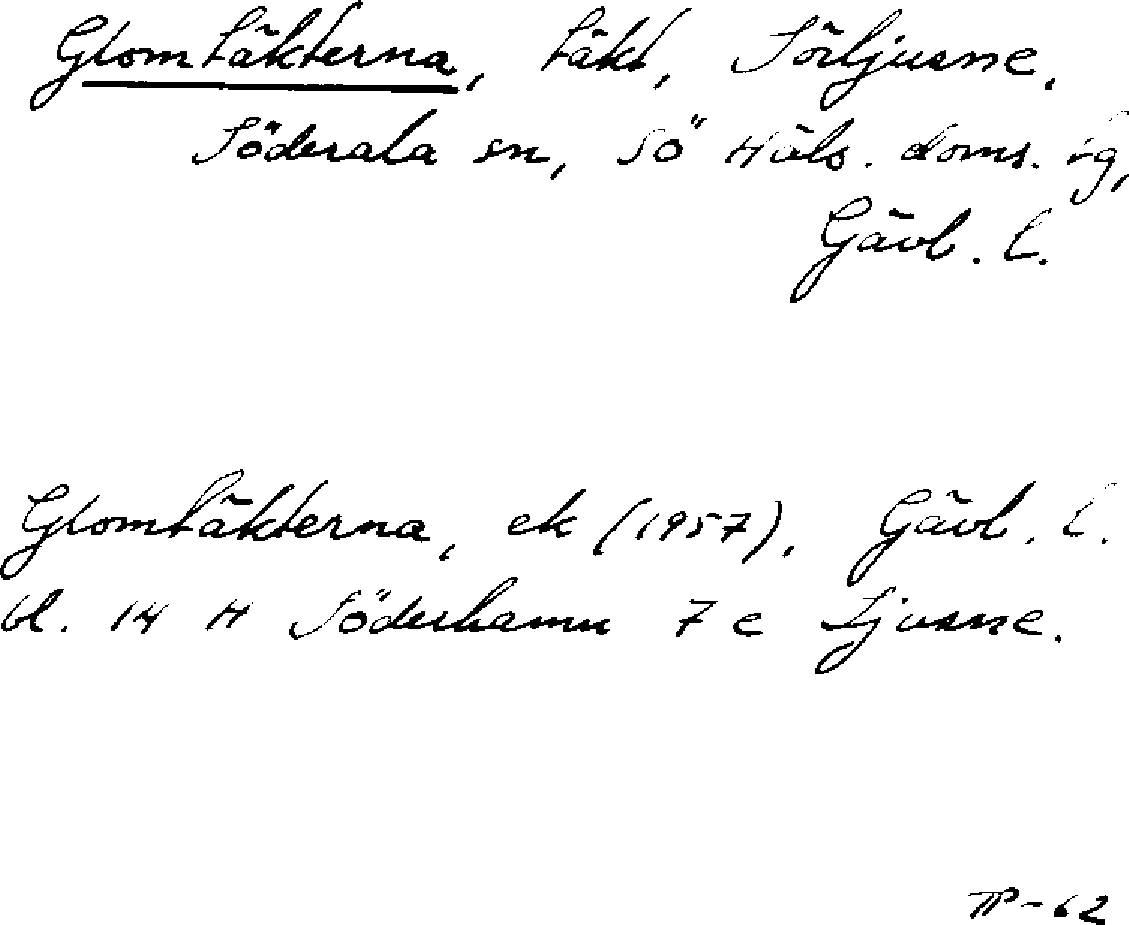 Glomtäkterna, täkt, Sörljusne,
Söderala sn, Sö Häls. doms. lg,
Gävl. l.
Glomtäkterna, ek (1957), Gävl. l.
bl. 14 H Söderhamn 7 e Ljusne.
TP-62